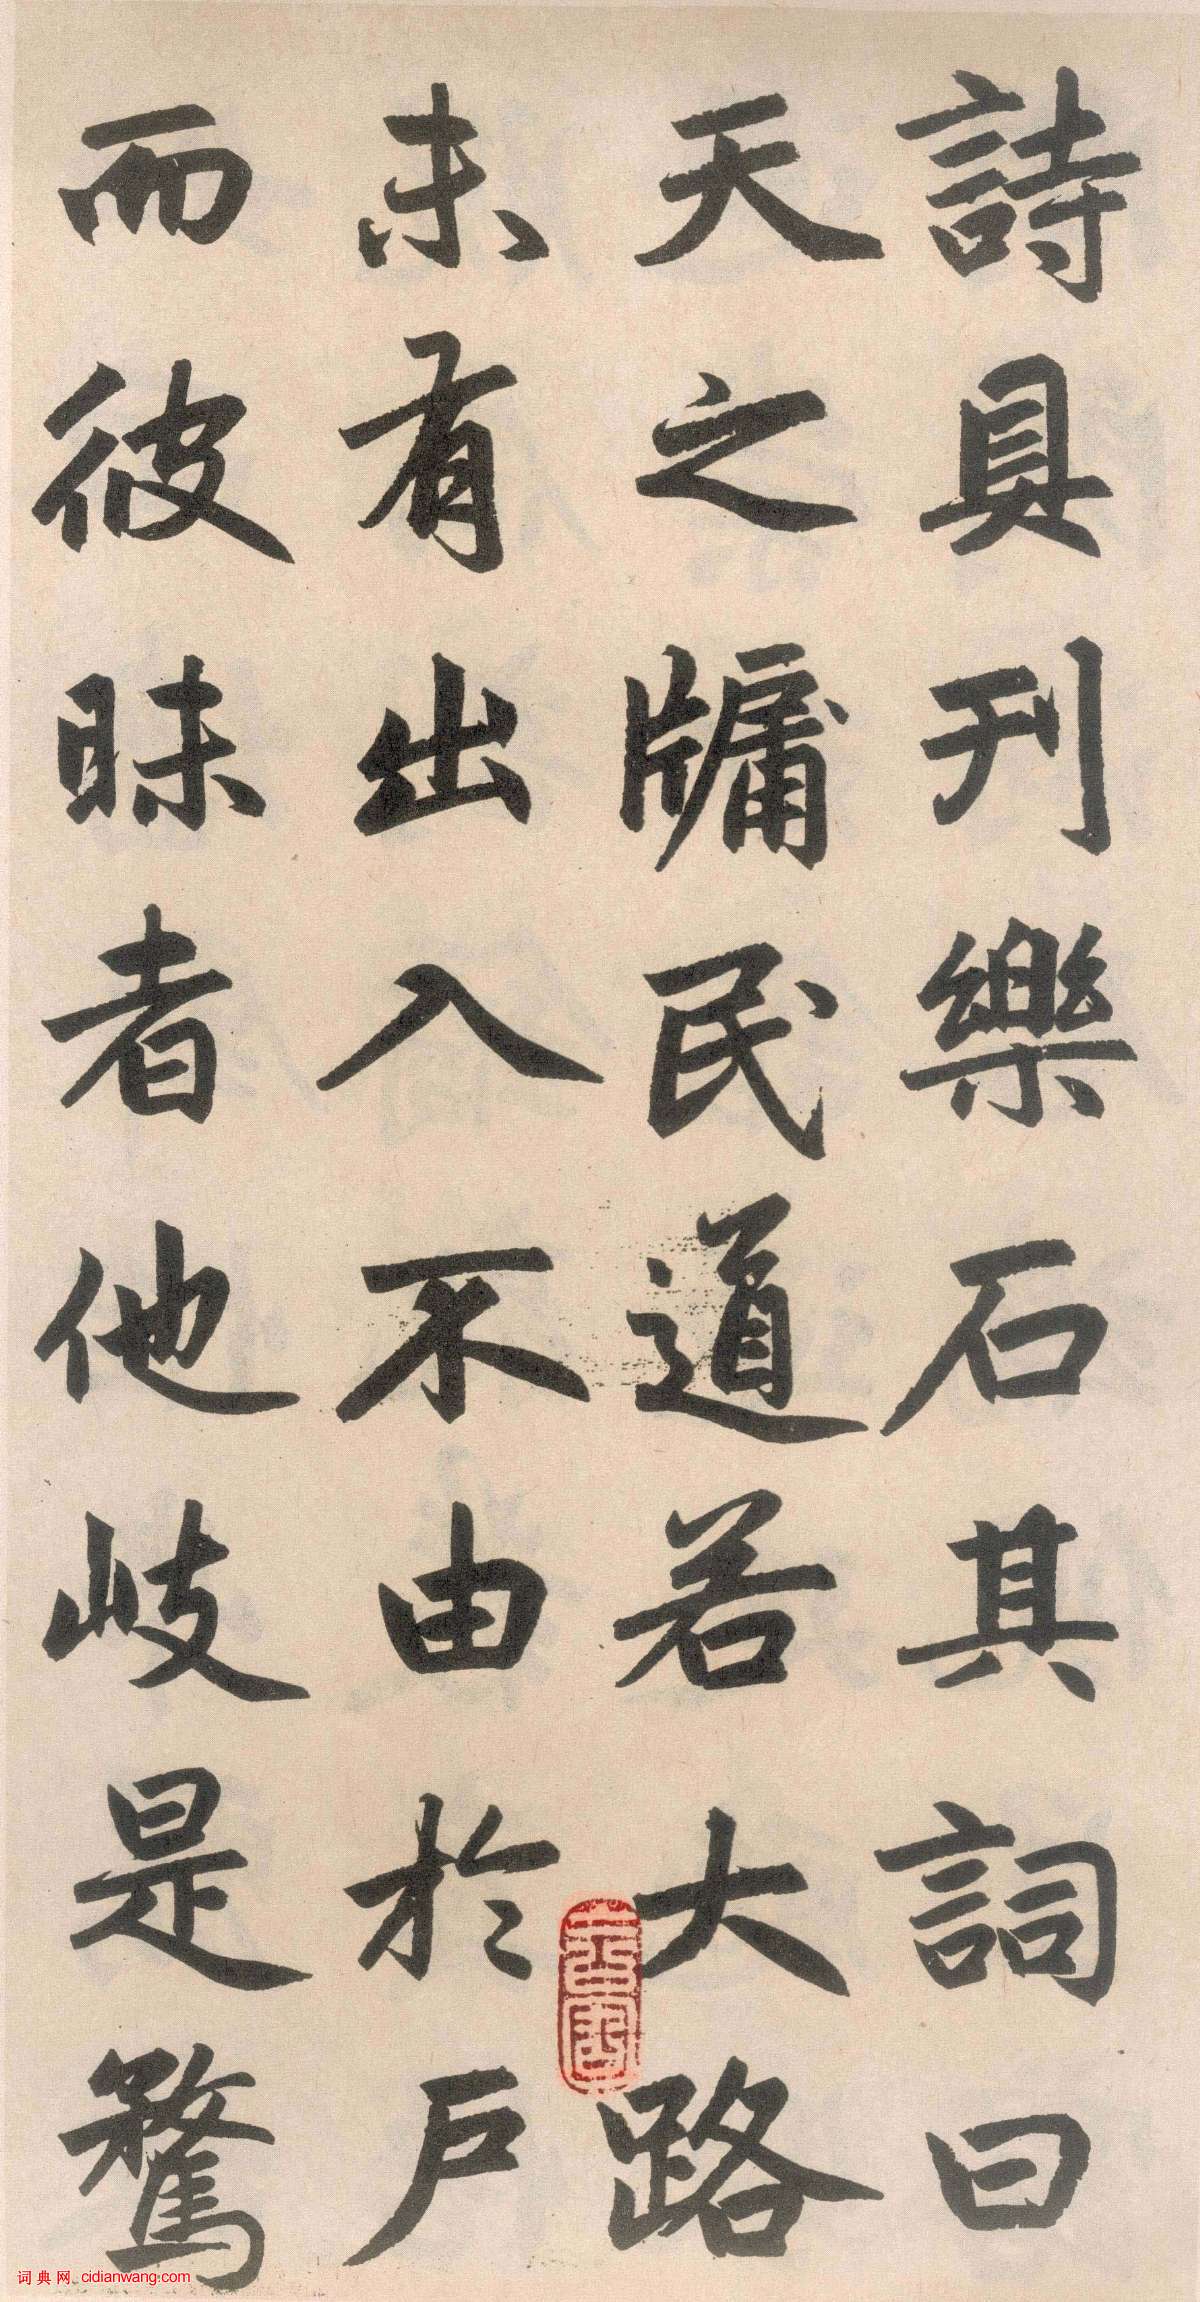 詩具刊樂石其詞曰
天之牖民道若大路
未有出入不由於戶
而彼昧者他岐是騖
词典网 cidianwang.com